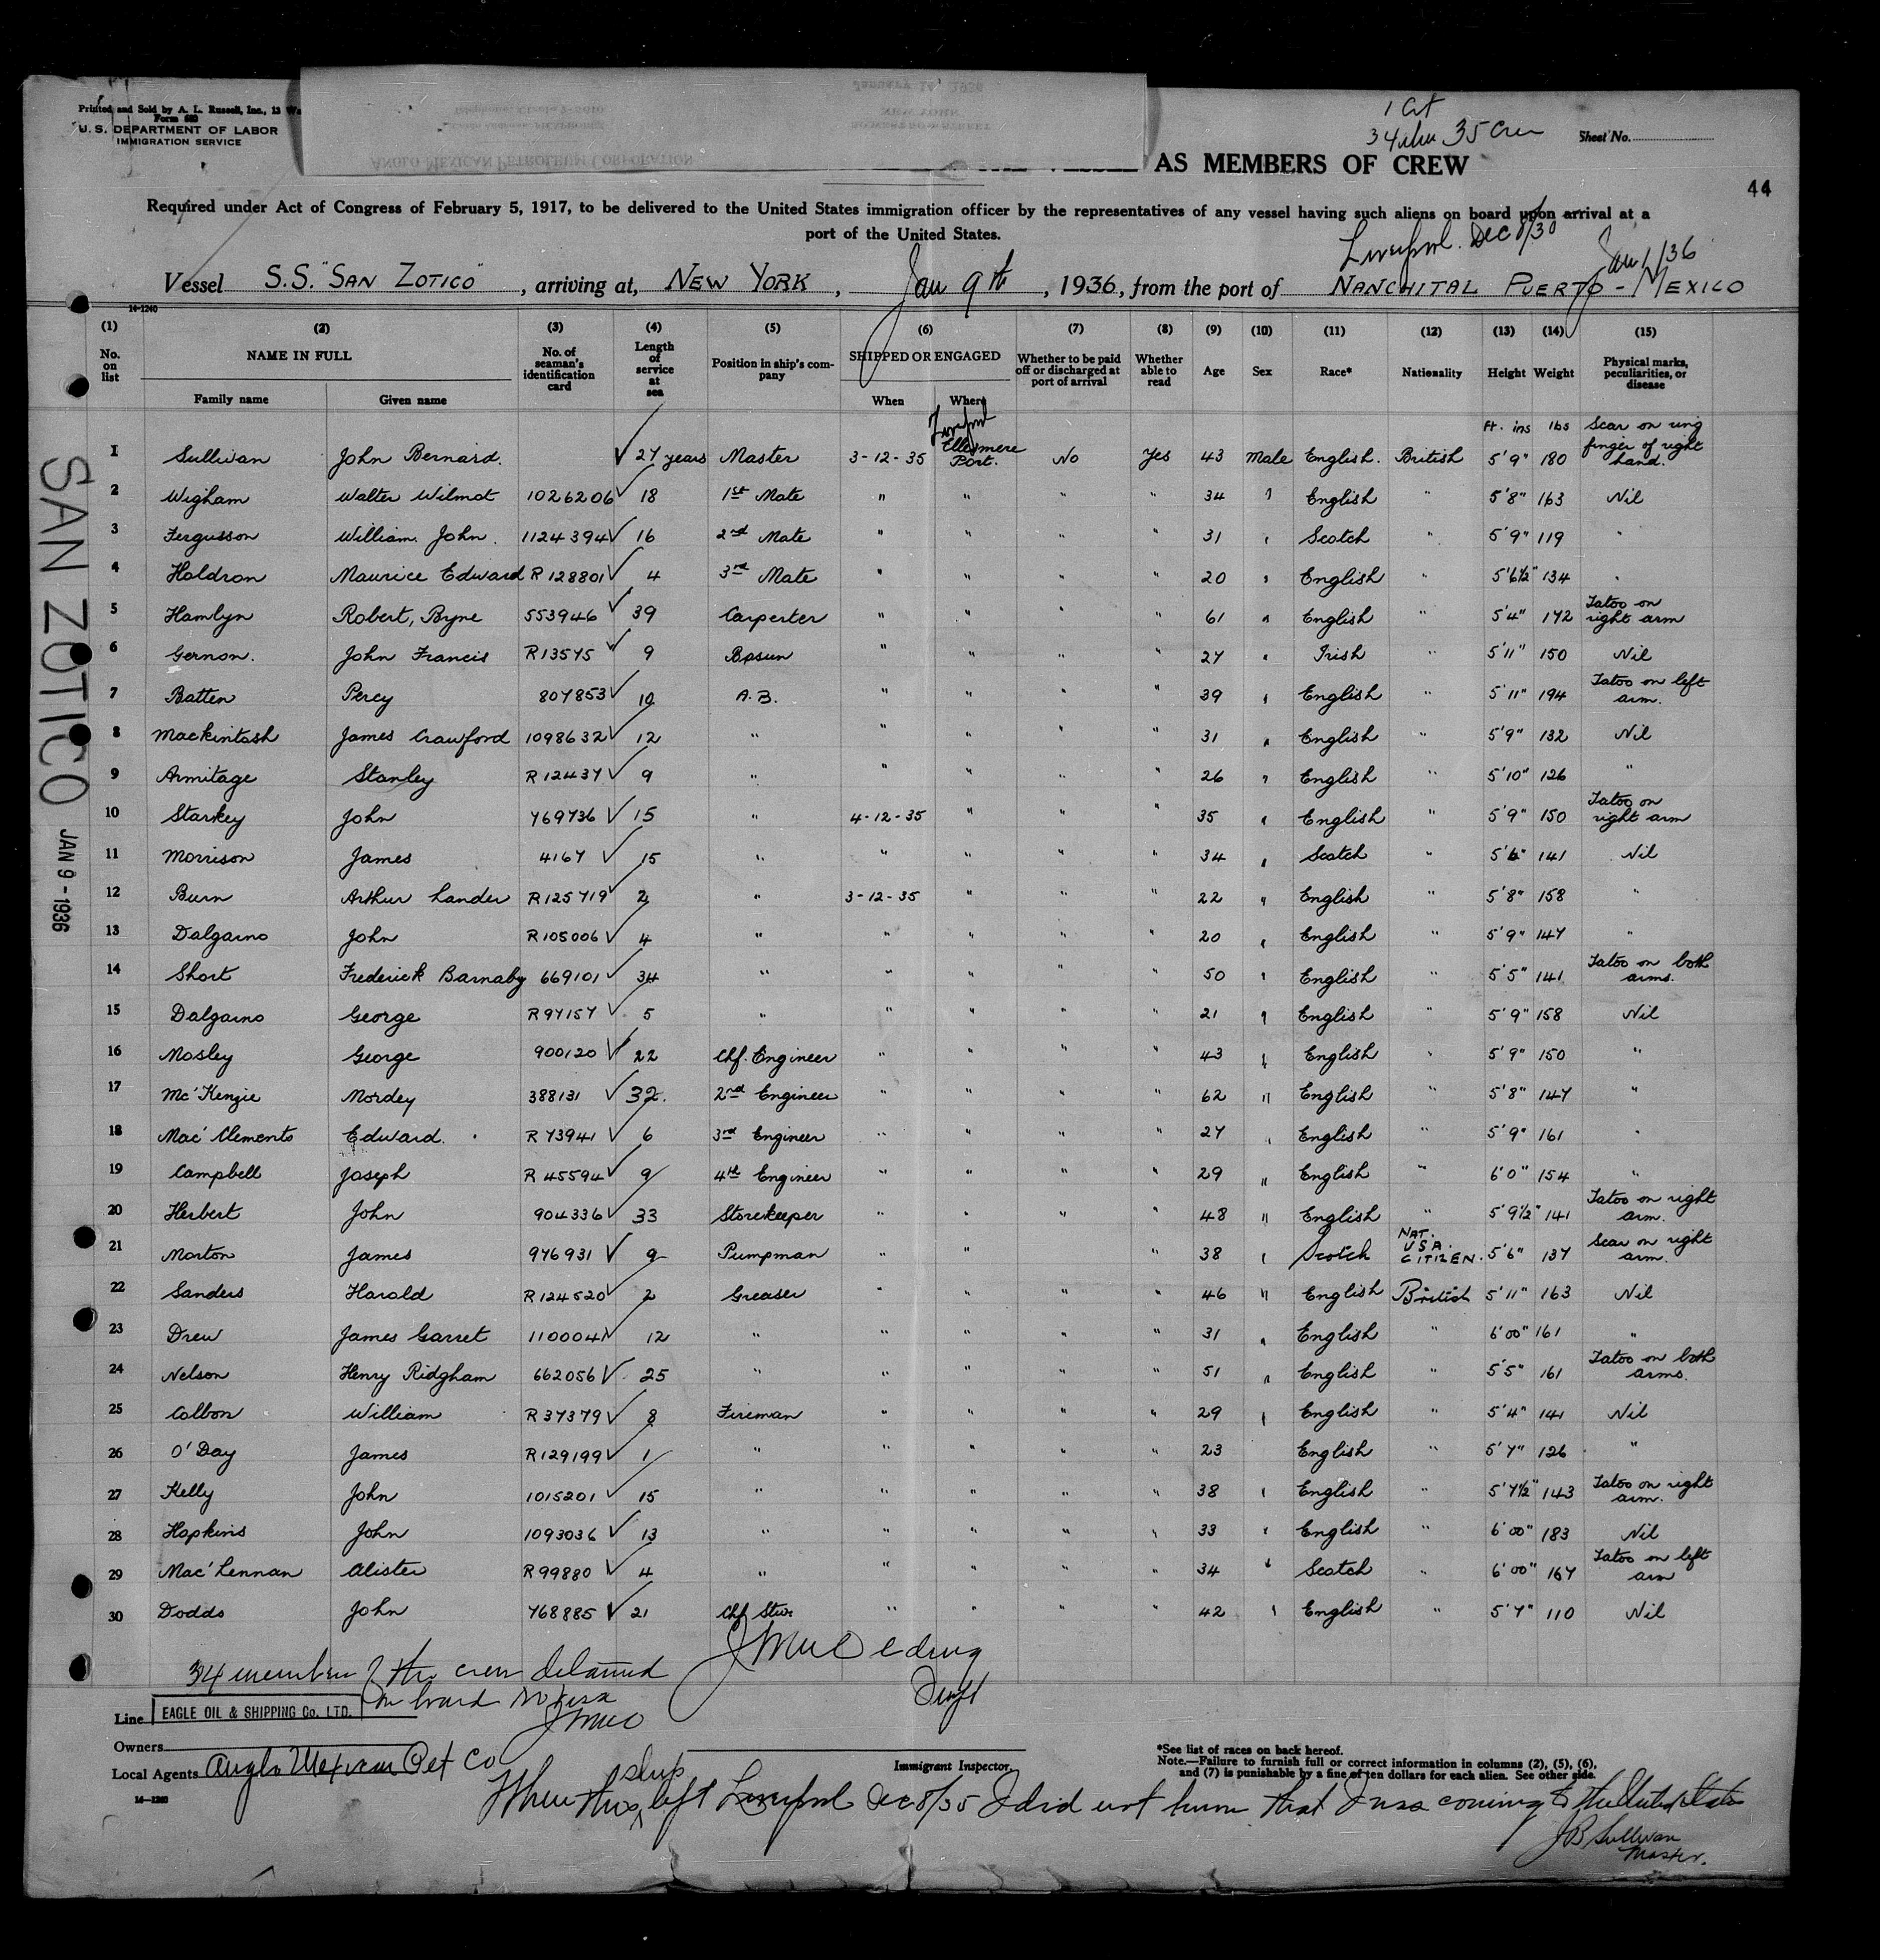 Printed and Sold by A. L. Russell, Inc., 13 Wa
Form 680
U. S. DEPARTMENT OF LABOR
IMMIGRATION SERVICE
January 14, 1936
NEW YORK
ANGLO MEXICAN PETROLEUM CORPORATION
1 Cit
35 Crew
Sheet No.
AS MEMBERS OF CREW
44
Required under Act of Congress of February 5, 1917, to be delivered to the United States immigration officer by the representatives of any vessel having such aliens on board upon arrival at a
port of the United States.
Liverpool. Dec 8/30 Jan 1/36
Vessel S.S. "SAN ZOTICO", arriving at, NEW YORK, Jan 9th, 1936, from the port of NANCHITAL PUERTO - MEXICO
14-1240
(1) (2) (3) (4) (5) (6) (7) (8) (9) (10) (11) (12) (13) (14) (15)
No. on list NAME IN FULL No. of seaman's identification card Length of service at sea Position in ship's company SHIPPED OR ENGAGED Whether to be paid off or discharged at port of arrival Whether able to read Age Sex Race* Nationality Height Weight Physical marks, peculiarities, or disease
Family name Given name When Where
Liverpool
Ft. ins lbs
1 Sullivan John Bernard. 27 years Master 3-12-35 Ellesmere Port. No Yes 43 Male English. British 5'9" 180 Scar on ring finger of right hand.
2 Wigham Walter Wilmot 1026206 18 1st Mate " " " " 34 " English " 5'8" 163 Nil
3 Fergusson William John. 1124394 16 2nd Mate " " " " 31 " Scotch " 5'9" 119 "
4 Holdron Maurice Edward R 128801 4 3rd Mate " " " " 20 " English " 5'6½" 134 "
5 Hamlyn Robert, Byne 553946 39 Carpenter " " " " 61 " English " 5'4" 172 Tatoo on right arm
6 Gernon. John Francis R13575 9 Bosun " " " " 27 " Irish " 5'11" 150 Nil
7 Batten Percy 807853 10 A.B. " " " " 39 " English " 5'11" 194 Tatoo on left arm.
8 Mackintosh James Crawford 1098632 12 " " " " " 31 " English " 5'9" 132 Nil
9 Armitage Stanley R 12437 9 " " " " " 26 " English " 5'10" 126 "
10 Starkey John 769736 15 " 4-12-35 " " " 35 " English " 5'9" 150 Tatoo on right arm
11 Morrison James 4167 15 " " " " " 34 " Scotch " 5'6" 141 Nil
12 Burn Arthur Lander R125719 2 " 3-12-35 " " " 22 " English " 5'8" 158 "
13 Dalgarno John R105006 4 " " " " " 20 " English " 5'9" 147 "
14 Short Frederick Barnaby 669101 34 " " " " " 50 " English " 5'5" 141 Tatoo on both arms.
15 Dalgarno George R97157 5 " " " " " 21 " English " 5'9" 158 Nil
16 Mosley George 900120 22 Chf. Engineer " " " " 43 " English " 5'9" 150 "
17 Mc'Kenzie Mordey 388131 32. 2nd Engineer " " " " 62 " English " 5'8" 147 "
18 Mac'Clements Edward. R 73941 6 3rd Engineer " " " " 27 " English " 5'9" 161 "
19 Campbell Joseph R 45594 9 4th Engineer " " " " 29 " English " 6'0" 154 "
20 Herbert John 904336 33 Storekeeper " " " " 48 " English " 5'9½" 141 Tatoo on right arm.
21 Morton James 976931 9 Pumpman " " " " 38 " Scotch NAT. USA. CITIZEN. 5'6" 137 Scar on right arm.
22 Sanders Harold R124520 2 Greaser " " " " 46 " English British 5'11" 163 Nil
23 Drew James Garret 1100041 12 " " " " " 31 " English " 6'00" 161 "
24 Nelson Henry Ridgham 662056 25 " " " " " 51 " English " 5'5" 161 Tatoo on both arms.
25 Colbon William R37379 8 Fireman " " " " 29 " English " 5'4" 141 Nil
26 O'Day James R129199 1 " " " " " 23 English " 5'7" 126 "
27 Kelly John 1015201 15 " " " " " 38 " English " 5'7½" 143 Tatoo on right arm.
28 Hopkins John 1093036 13 " " " " " 33 " English " 6'00" 183 Nil
29 Mac'Lennan Alister R99880 4 " " " " " 34 " Scotch " 6'00" 167 Tatoo on left arm
30 Dodds John 768885 21 Chf Stwr " " " " 42 " English " 5'7" 110 Nil
SAN ZOTICO JAN 9 - 1936
34 members of the crew detained
on board no visa
Line EAGLE OIL & SHIPPING Co. LTD.
Owners
Immigrant Inspector.
Local Agents Anglo Mexican Pet Co
14-1240
*See list of races on back hereof.
Note.—Failure to furnish full or correct information in columns (2), (5), (6),
and (7) is punishable by a fine of ten dollars for each alien. See other side.
When this ship left Liverpool Dec 8/35 I did not know that I was coming to the United States
J B Sullivan
Master.